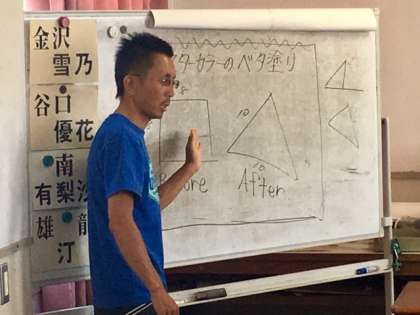 金沢
雪乃
谷口
優花
南
有梨沙
雄
龍
汀
ターカラーのベタ塗り
10
10
After